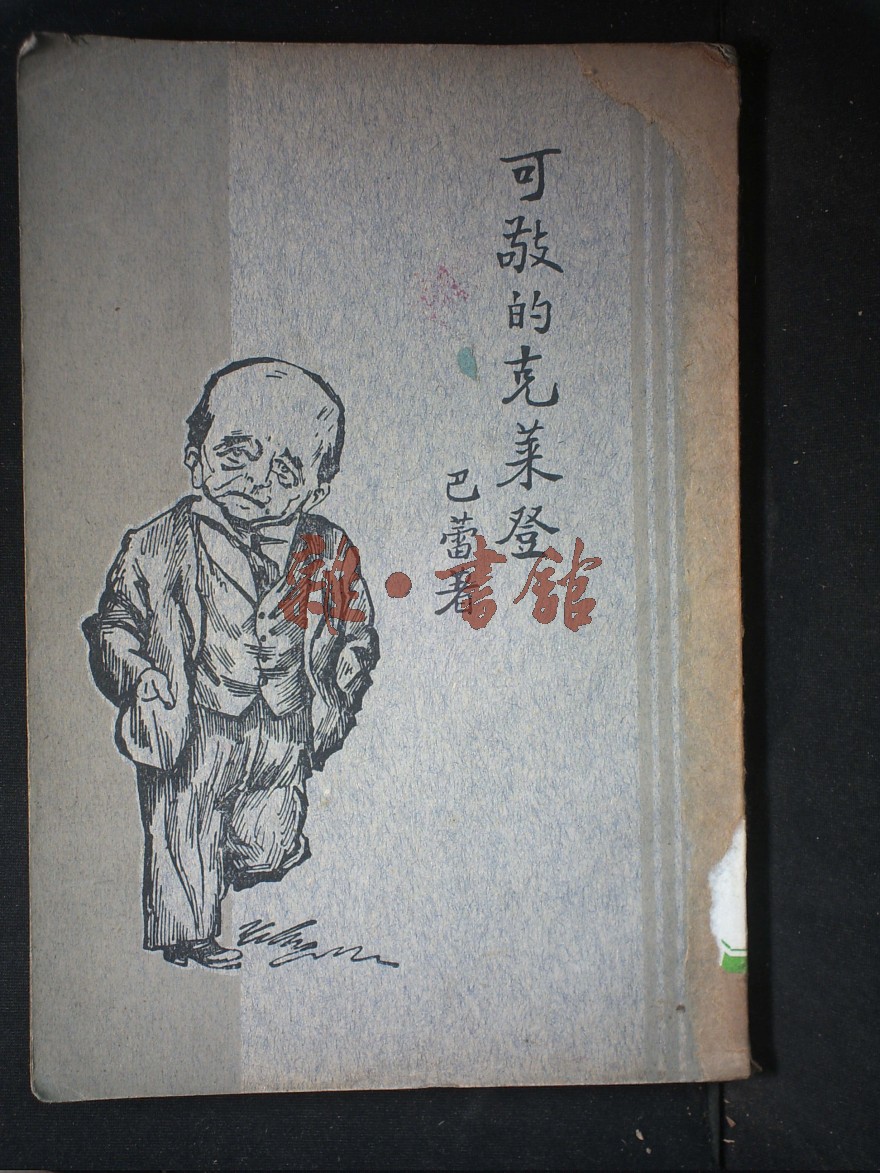 可敬的克莱登
巴蕾著
雜·書館